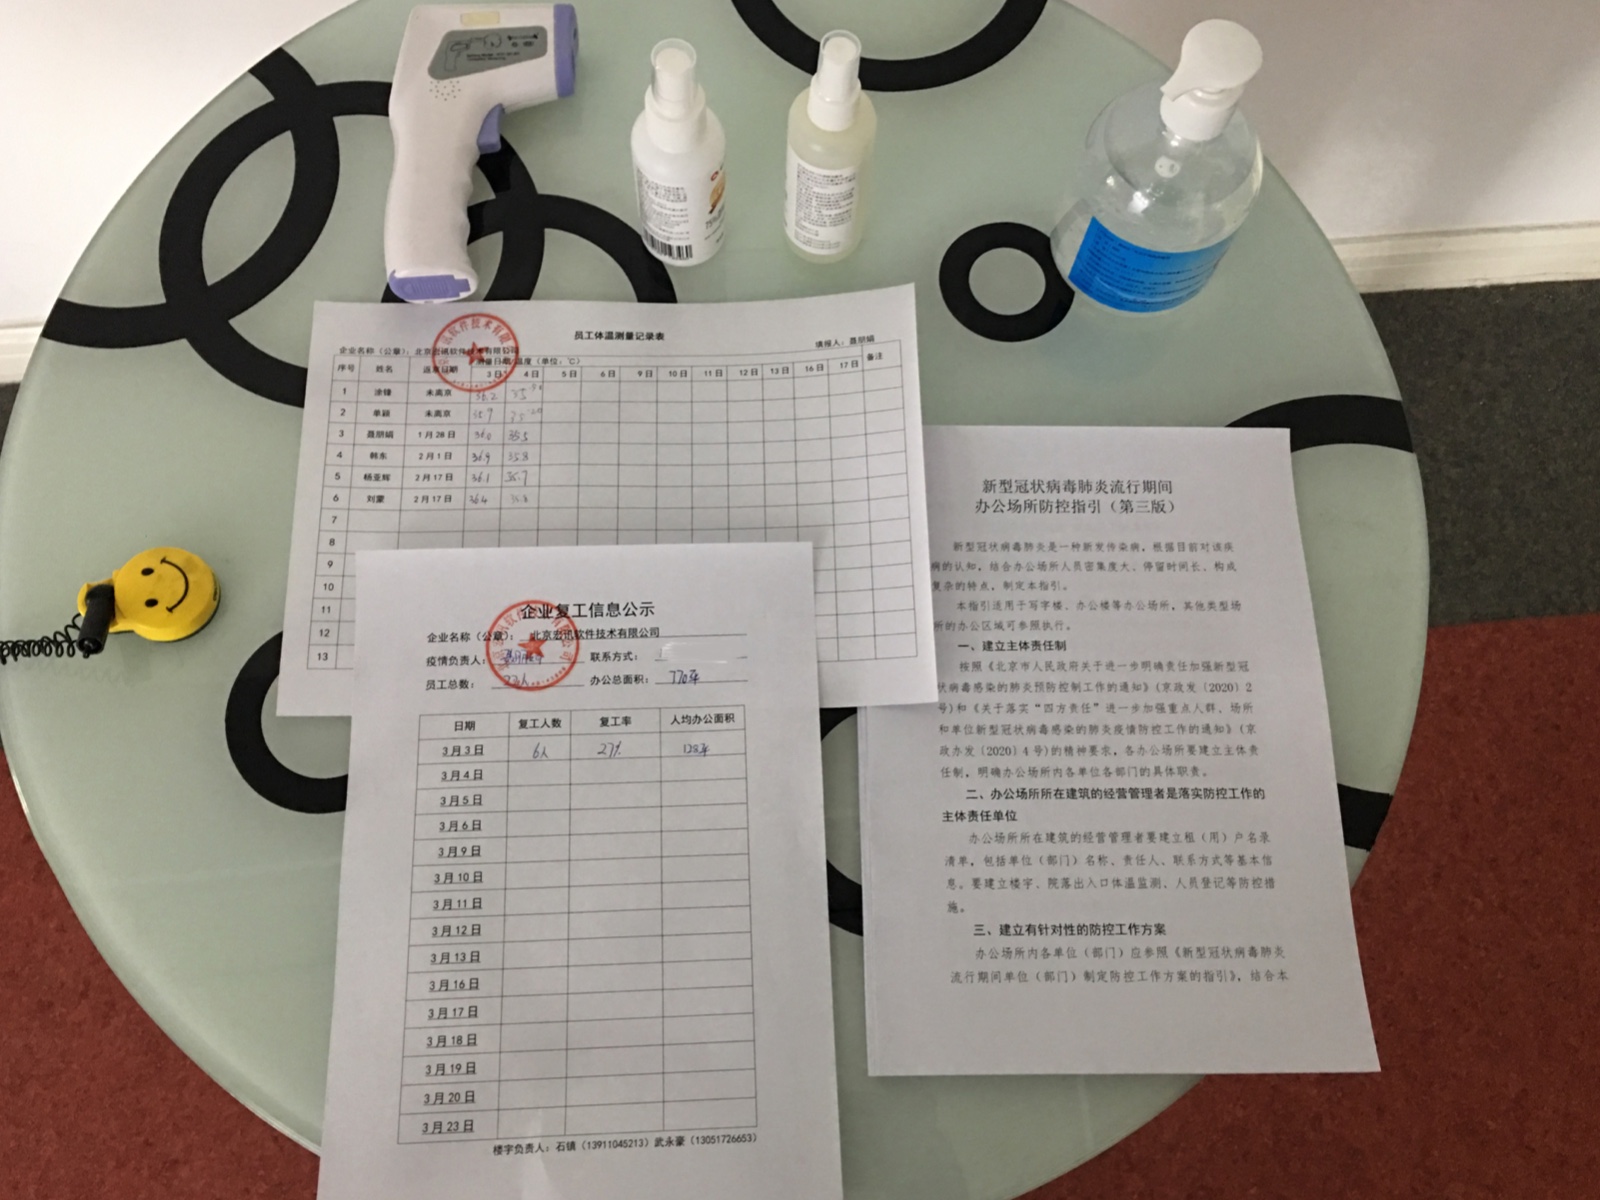 员工体温测量记录表
企业名称（公章）：北京宏迅软件技术有限公司 填报人：聂朋娟
序号 姓名 返京日期 测量日期/温度（单位：℃） 备注
3日 4日 5日 6日 9日 10日 11日 12日 13日 16日 17日
1 涂锋 未离京 36.2
2 单颖 未离京 35.9
3 聂朋娟 1月28日 36.0 36.5
4 韩东 2月1日 36.9 35.8
5 杨亚辉 2月17日 36.1 35.7
6 刘蒙 2月17日 36.4
7
8
9
10
11
12
13
企业复工信息公示
企业名称（公章）：北京宏迅软件技术有限公司
疫情负责人： 联系方式：
员工总数： 办公总面积：770平
日期 复工人数 复工率 人均办公面积
3月3日 6人 27% 128平
3月4日
3月5日
3月6日
3月9日
3月10日
3月11日
3月12日
3月13日
3月16日
3月17日
3月18日
3月19日
3月20日
3月23日
楼宇负责人：石镇（13911045213）武永豪（13051726653）
新型冠状病毒肺炎流行期间
办公场所防控指引（第三版）
新型冠状病毒肺炎是一种新发传染病，根据目前对该疾
病的认知，结合办公场所人员密集度大、停留时间长、构成
复杂的特点，制定本指引。
本指引适用于写字楼、办公楼等办公场所，其他类型场
所的办公区域可参照执行。
一、建立主体责任制
按照《北京市人民政府关于进一步明确责任加强新型冠
状病毒感染的肺炎预防控制工作的通知》（京政发〔2020〕2
号）和《关于落实“四方责任”进一步加强重点人群、场所
和单位新型冠状病毒感染的肺炎疫情防控工作的通知》（京
政办发〔2020〕4号）的精神要求，各办公场所要建立主体责
任制，明确办公场所内各单位各部门的具体职责。
二、办公场所所在建筑的经营管理者是落实防控工作的
主体责任单位
办公场所所在建筑的经营管理者要建立租（用）户名录
清单，包括单位（部门）名称、责任人、联系方式等基本信
息。要建立楼宇、院落出入口体温监测、人员登记等防控措
施。
三、建立有针对性的防控工作方案
办公场所内各单位（部门）应参照《新型冠状病毒肺炎
流行期间单位（部门）制定防控工作方案的指引》，结合本